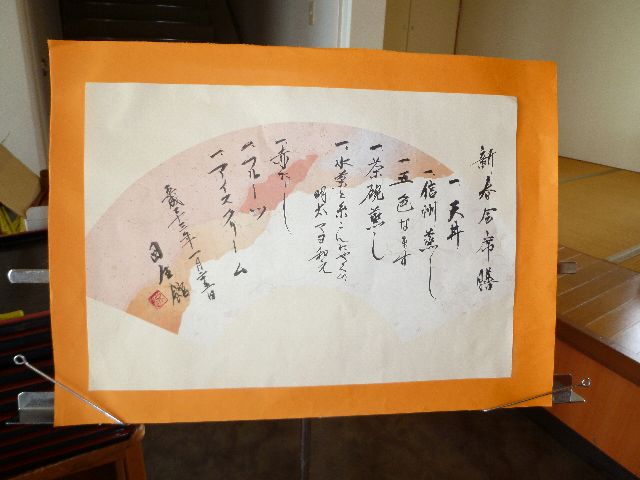 新春会席膳
一 天丼
一 信州蒸し
一 五色なます
一 茶碗蒸し
一 水菜と糸こんにゃくの
明太マヨ和え
一 赤だし
一 フルーツ
一 アイスクリーム
平成二十三年一月二十五日